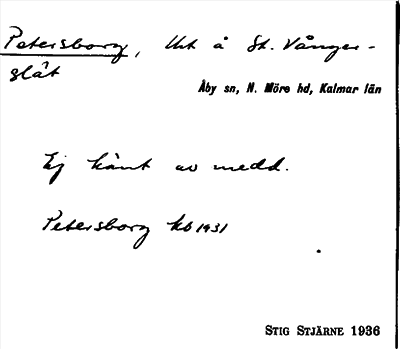 Petersborg, Utt å St. Vånger-
slåt
Åby sn, N. Möre hd, Kalmar län
Ej känt av medd.
Petersborg kb 1931
STIG STJÄRNE 1936